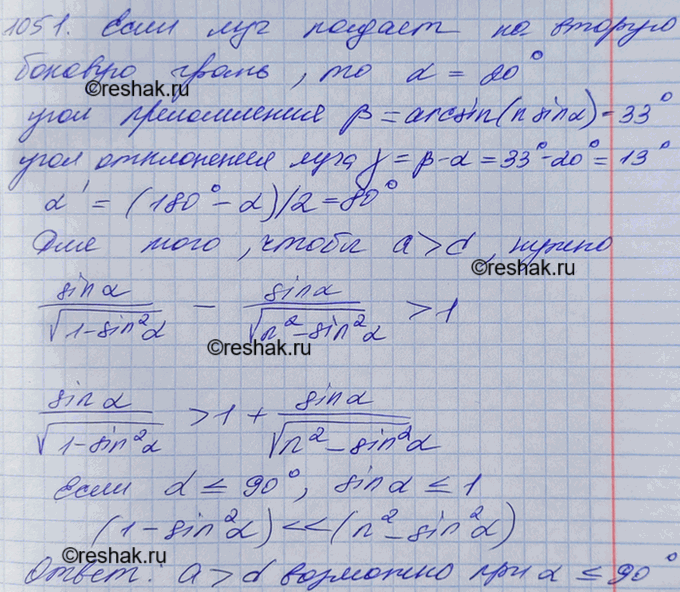 1051. Если луч падает на вторую
боковую грань, то α = 20°
©reshak.ru
угол преломления β = arcsin(n sinα) = 33°
угол отклонения луча γ = β - α = 33° - 20° = 13°
α' = (180° - α)/2 = 80°
Для того, чтобы a > d, нужно
©reshak.ru
sinα/√(1-sin²α) - sinα/√(n²-sin²α) > 1
©reshak.ru
sinα/√(1-sin²α) > 1 + sinα/√(n²-sin²α)
Если α ≤ 90°, sinα ≤ 1
(1-sin²α) << (n²-sin²α)
©reshak.ru
Ответ: a > d возможно при α ≤ 90°
©reshak.ru